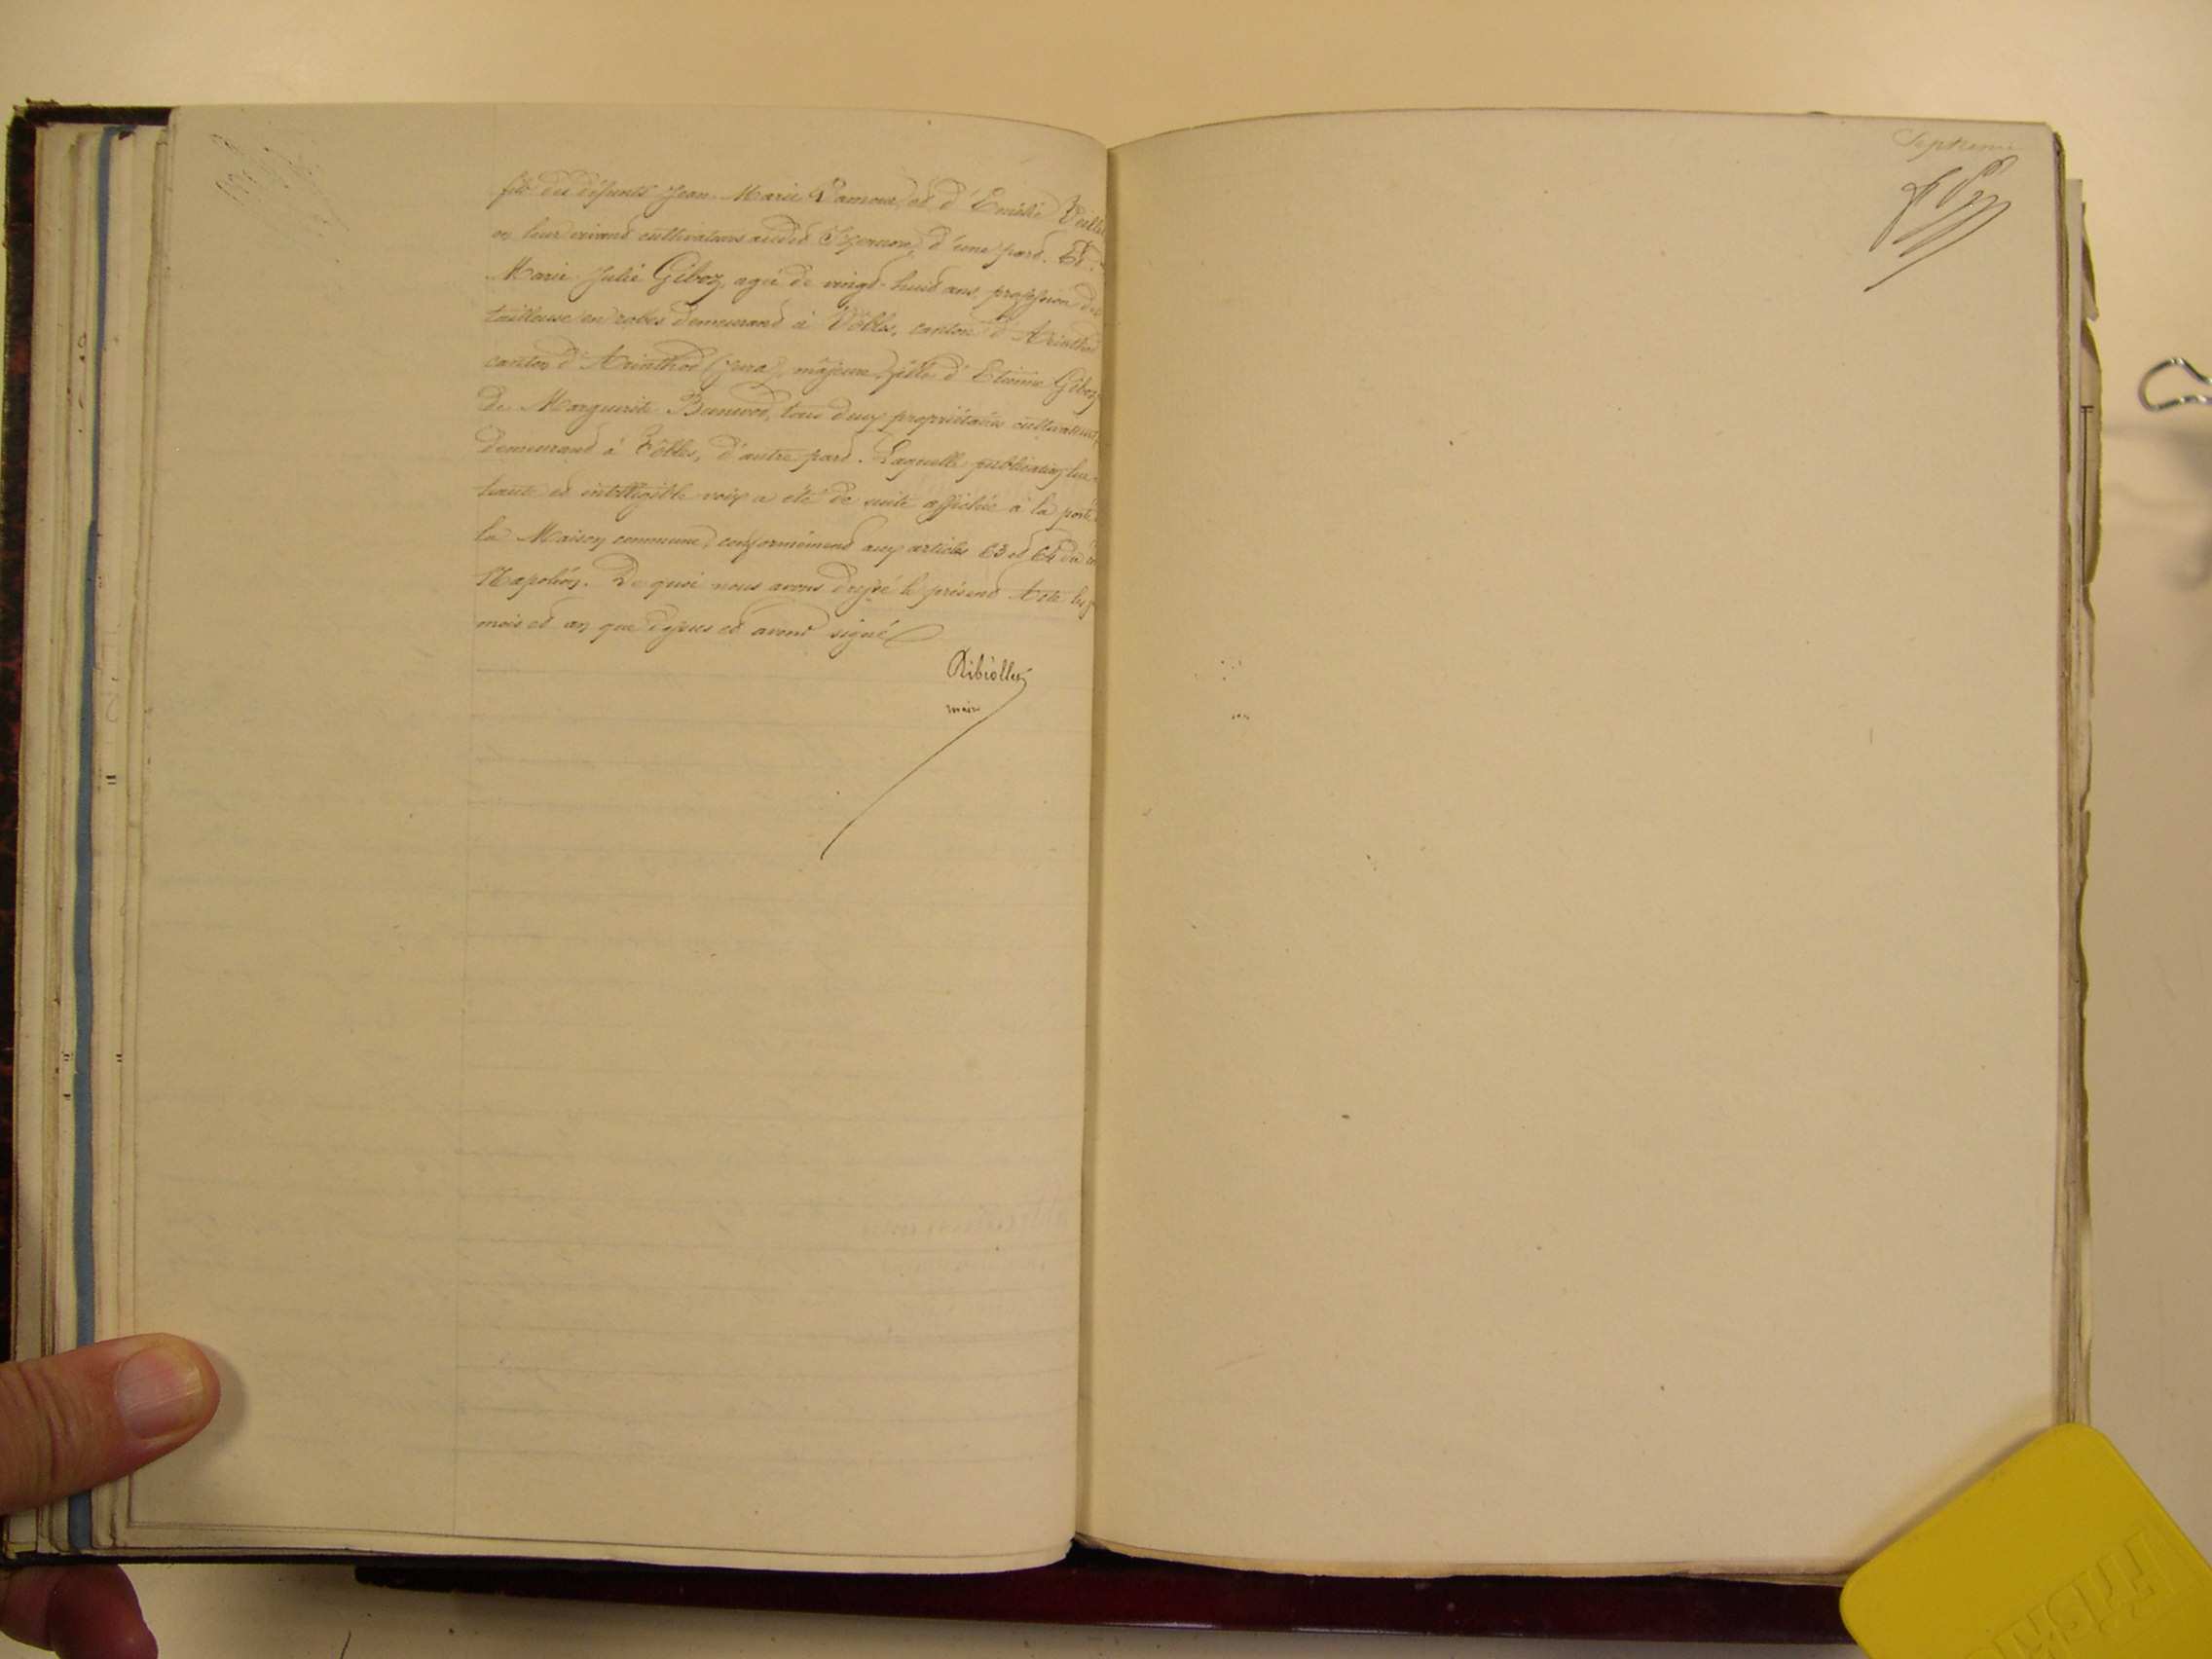 fils des défunts Jean-Marie Damour et d'Emélie
en leur vivant cultivateurs audit Izernore, d'une part. Et
Marie Julie Giboz, agée de vingt-huit ans, profession de
tailleuse en robes demeurant à Vôbles, canton d'Arinthod
canton d'Arinthod (Jura), majeure, fille d'Etienne Giboz
de Marguerite, tous deux propriétaires cultivateurs,
demeurant à Vôbles, d'autre part. Laquelle publication lue
haute et intelligible voix a été de suite affichée à la porte
la Maison commune, conformément aux articles 63 et 64 du
Napoléon. De quoi nous avons dressé le présent Acte les
mois et an que dessus et avons signé
Ribiollet
maire
Septième